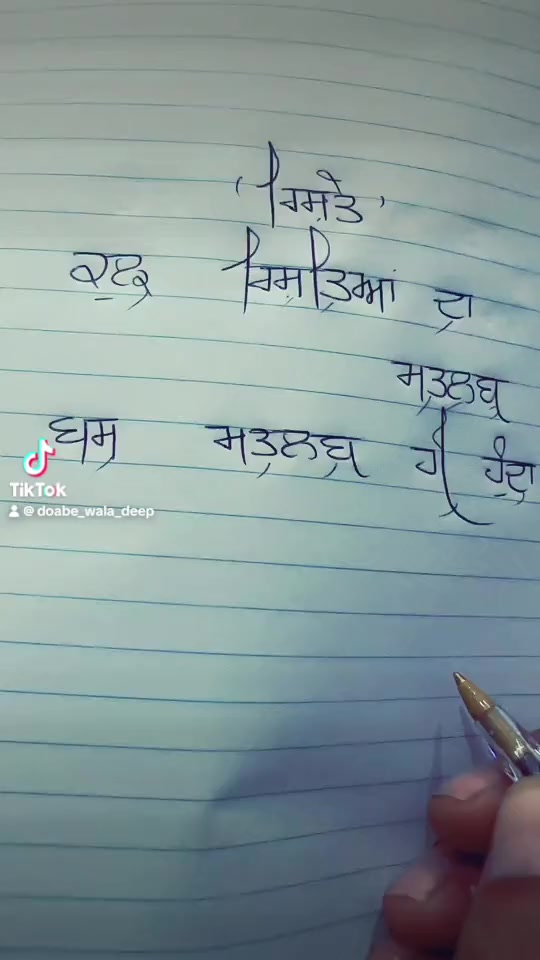 'ਰਿਸ਼ਤੇ'
ਕੁਝ ਰਿਸ਼ਤਿਆਂ ਦਾ
ਮਤਲਬ
ਬਸ ਮਤਲਬ ਹੀ ਹੁੰਦਾ
TikTok
@doabe_wala_deep